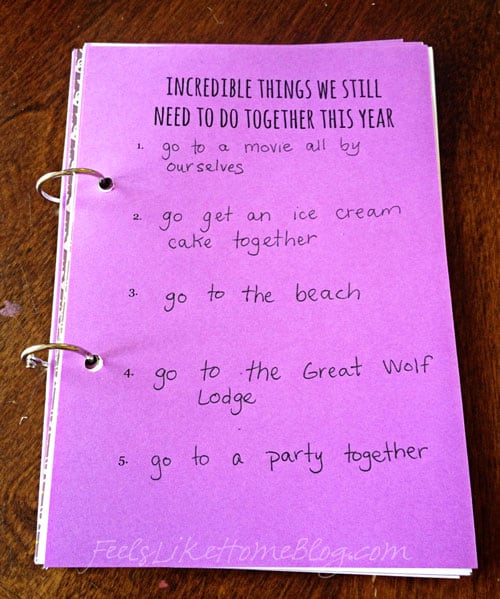 INCREDIBLE THINGS WE STILL
NEED TO DO TOGETHER THIS YEAR
1. go to a movie all by
ourselves
2. go get an ice cream
cake together
3. go to the beach
4. go to the Great Wolf
Lodge
5. go to a party together
FeelsLikeHomeBlog.com